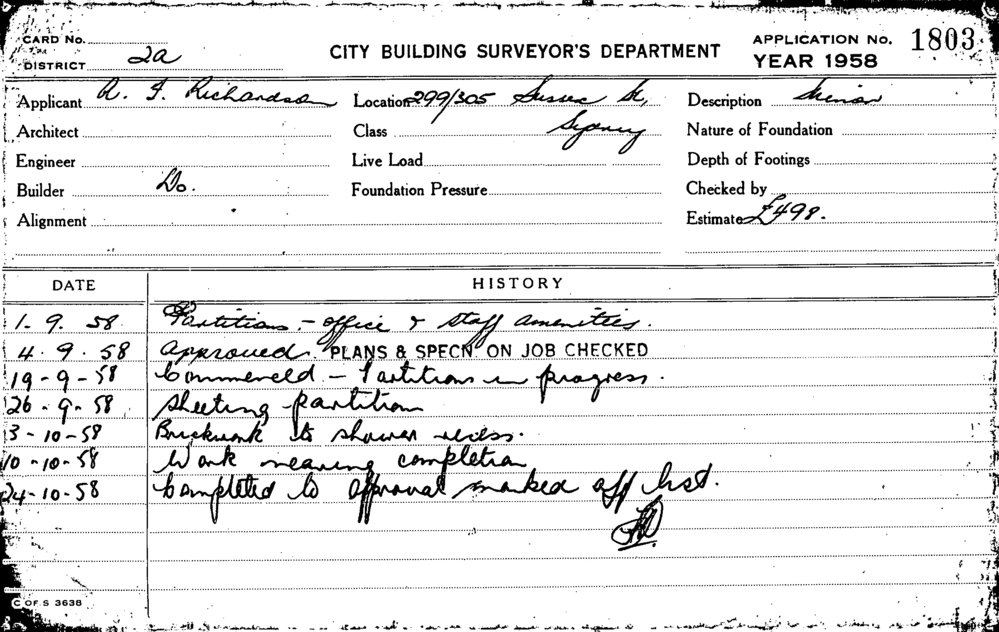 CARD No.
DISTRICT 2a
CITY BUILDING SURVEYOR'S DEPARTMENT
APPLICATION No. 1803
YEAR 1958
Applicant R. I. Richardson Location 299/305 Sussex St, Description Minor
Architect Class Sydney Nature of Foundation
Engineer Live Load Depth of Footings
Builder Do. Foundation Pressure Checked by
Alignment Estimate £498.
DATE HISTORY
1. 9. 58 Partitions - office & staff amenities.
4. 9. 58 Approved. PLANS & SPECN. ON JOB CHECKED
19-9-58 Commenced - Partitions in progress.
26-9-58 Sheeting partition
3-10-58 Brickwork to shower recess.
10-10-58 Work nearing completion
24-10-58 Completed to approval marked off list.
C OF S 3638